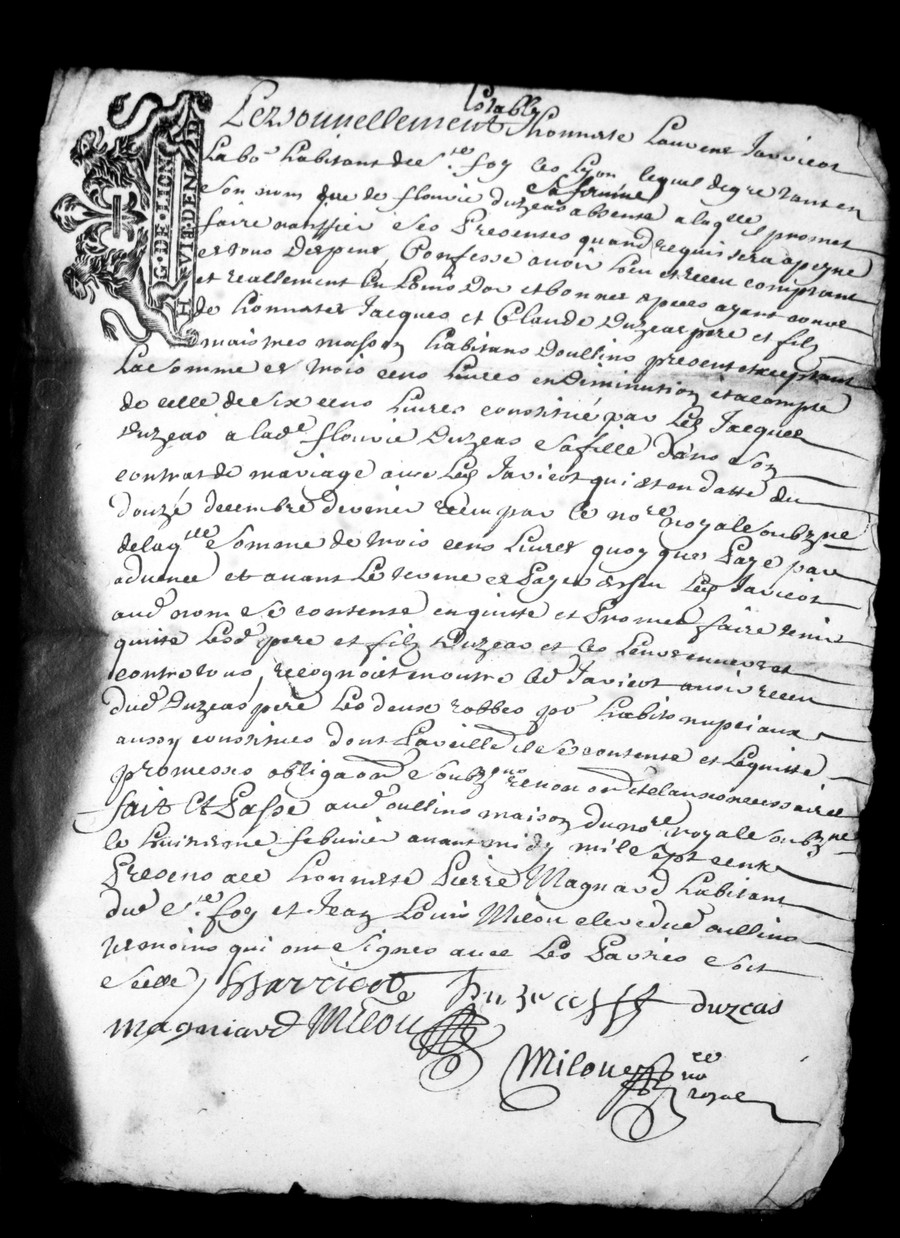 G. DE LION
HUIT DEN
Establly
Personnellement honneste Laurent Javricot
Labo.r habitant de S.te foy les Lyon lequel de gre tant en
sa femme
son nom que de flourie duzeas absente a laq.lle il promet
faire rattiffier ses Presentes quand requis sera a peyne
et tous despens, Confesse avoir heu et receu comptant
et reallement en Louis Dor et bonnes especes ayant cours
de honnestes Jacques et Claude Duzeas pere et filz
maistres masson habitans doullins presents et acceptant
La somme de trois cens Livres en diminution et a compte
de celle de six cens Livres constitué par Led. Jacques
Duzeas a lad.e flourie Duzeas sa fille dans son
contrat de mariage avec Led. Javricot qui est en datte du
douze decembre dernier receu par le no.re royal soubz.ne
de laq.lle somme de trois cens Livres quoy que Paye par
advance et avant Le terme de Payer escheu Led. Javricot
aud. nom se contente en quitte et Promet faire tenir
quitte Lesd. pere et filz Duzeas et les Leurs envers et
contre tous, recognoist en outre led. Javricot avoir receu
dud. Duzeas pere Les deux robbes po.r habits nupciaux
aussy constitues dont Pareillem.t il se contente et Le quitte
promesses obliga.on soubz.ons renon.on et clauses necessaires
fait Et Passe aud. oullins maison du no.re royal soubz.ne
le huitieme febvrier avant midy mil sept cents
Presens a ce honneste Pierre Magnard habitant
dud. S.te foy et Jean Louis Milou clerc dud. oullins
tesmoins qui ont signes avec Les Parties soit
scelle / Javricot Duzeas duzeas
magniard Milou
Miloue
no.re
royal